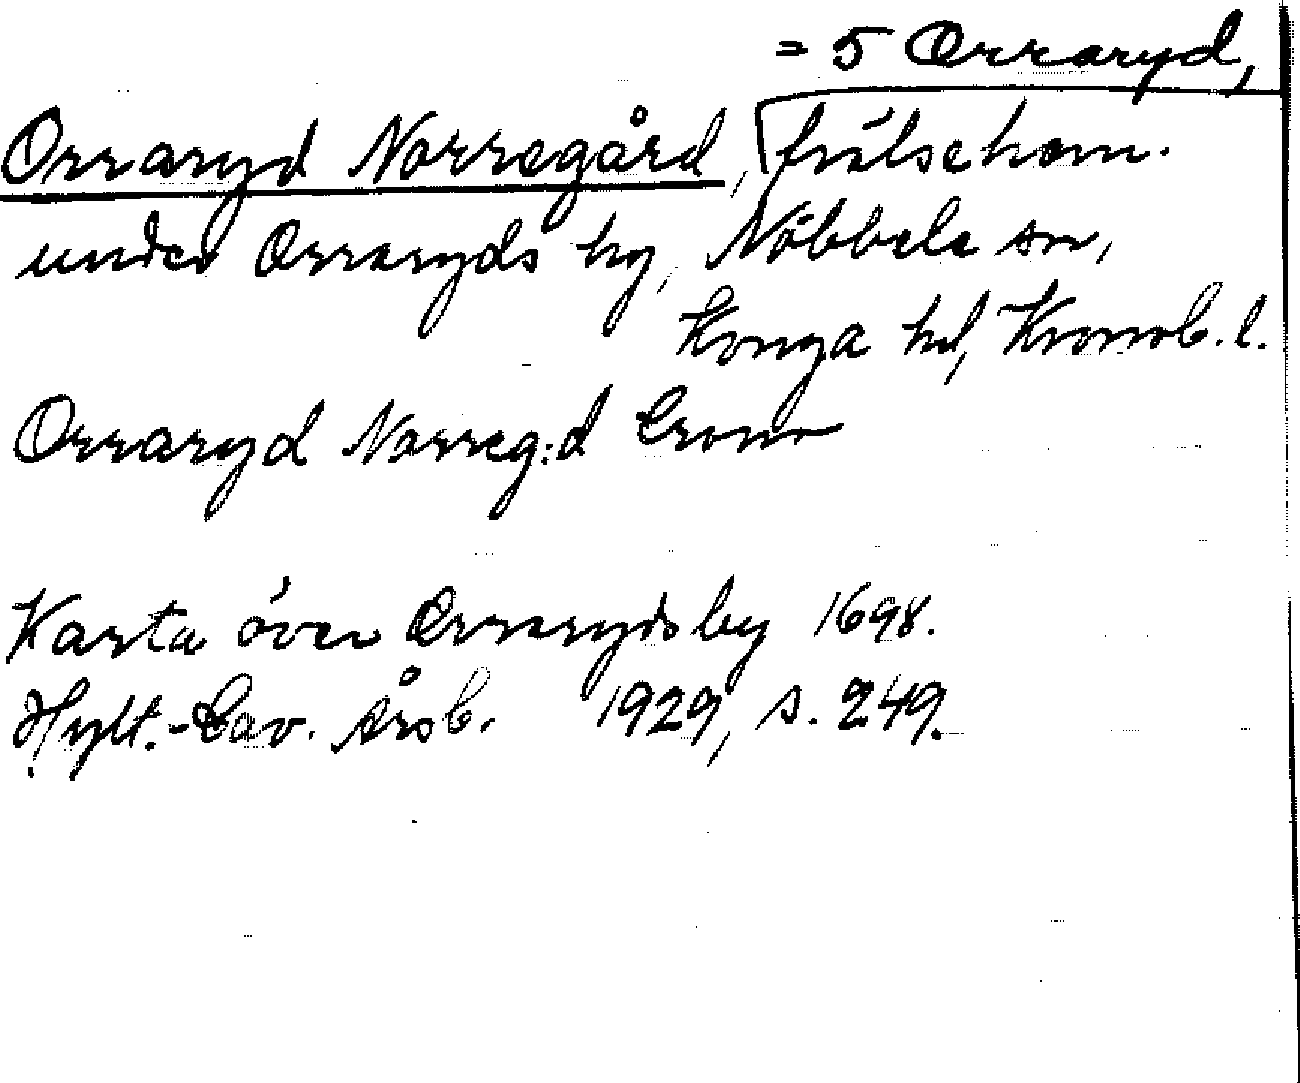 = 5 Orraryd,
Orraryd Norregård, frälsehem.
under Orraryds by, Nöbbele sn,
Konga hd, Kronob. l.
Orraryd Norreg:d Crono
Karta över Orraryds by 1698.
Hylt.-Cav. Årsb. 1929, s. 249.